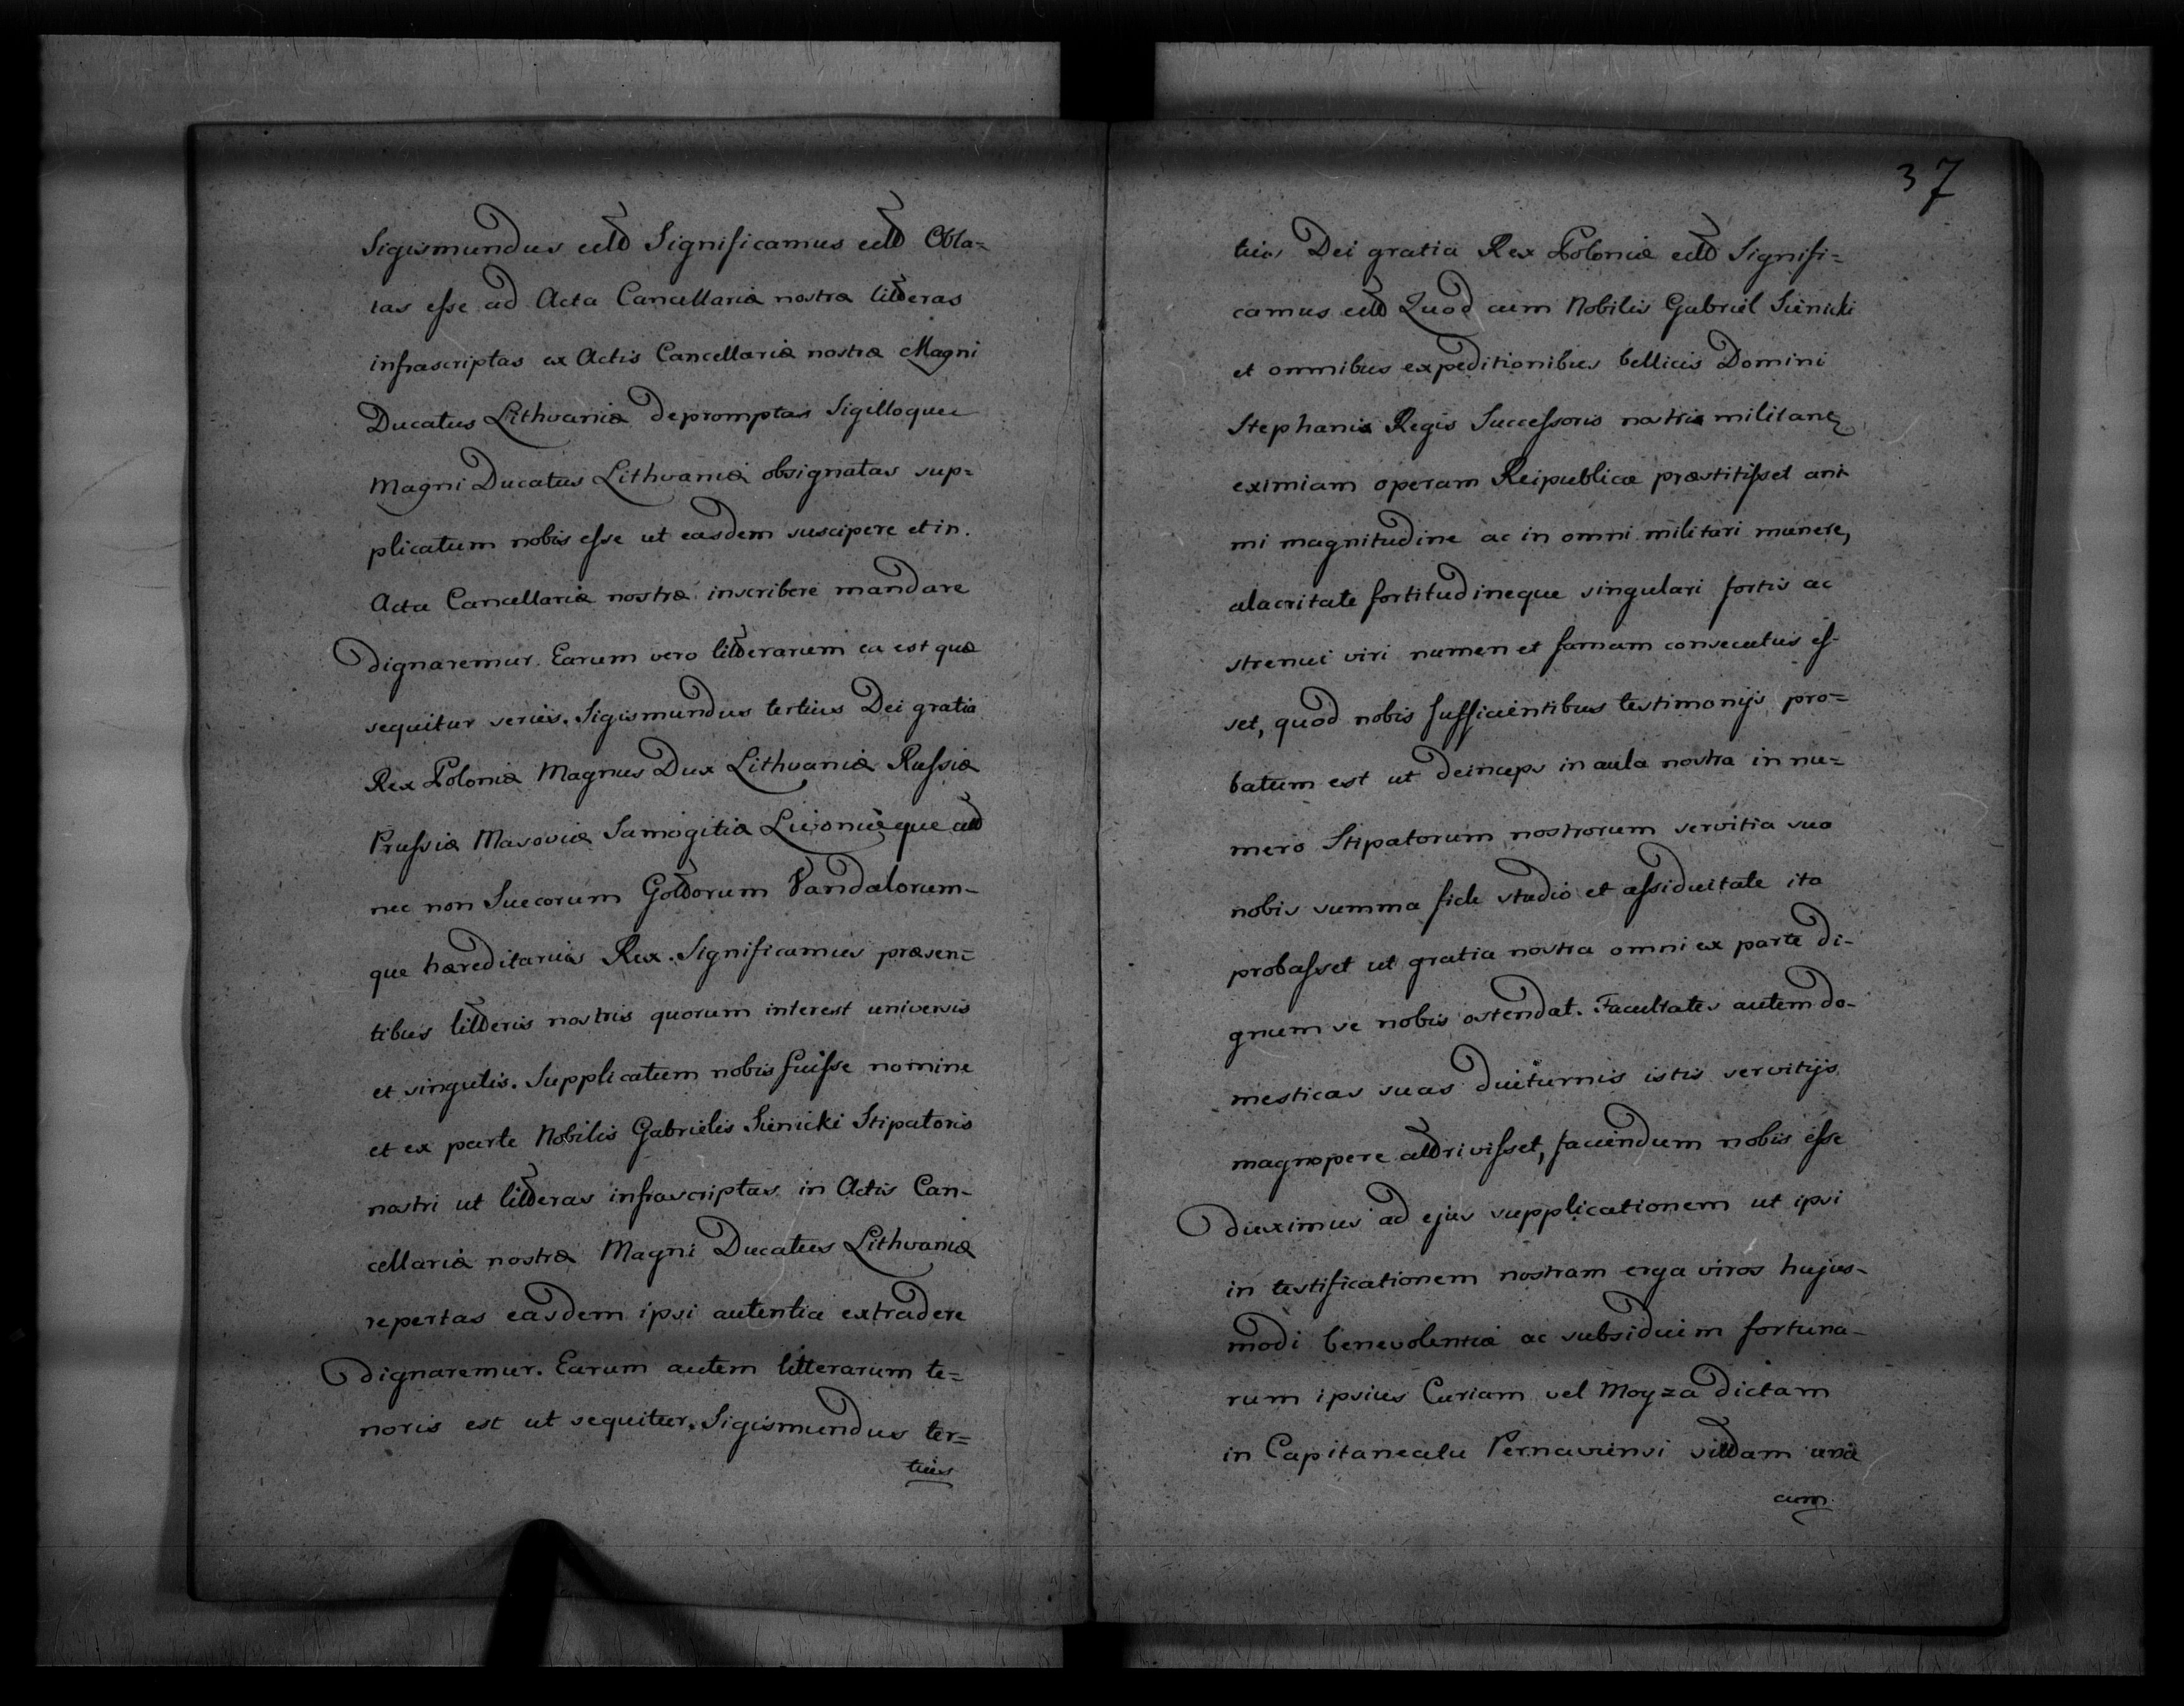 Sigismundus ett Significamus ett Obla=
tas esse ad Acta Cancellariæ nostræ litteras
infrascriptas ex Actis Cancellariæ nostræ Magni
Ducatus Lithvaniæ depromptas Sigilloque
Magni Ducatus Lithvaniæ obsignatas sup=
plicatum nobis esse ut easdem suscipere et in
Acta Cancellariæ nostræ inscribere mandare
dignaremur. Earum vero litterarum ea est quæ
sequitur series. Sigismundus tertius Dei gratia
Rex Poloniæ Magnus Dux Lithvaniæ Russiæ
Prussiæ Masoviæ Samogitiæ Livoniæque
nec non Suecorum Gottorum Vandalorum-
que hæreditarius Rex. Significamus præsen=
tibus litteris nostris quorum interest universis
et singulis. Supplicatum nobis fuisse nomine
et ex parte Nobilis Gabrielis Sienicki Stipatoris
nostri ut litteras infrascriptas in Actis Can-
cellariæ nostræ Magni Ducatus Lithvaniæ
repertas easdem ipsi autentia extradere
dignaremur. Earum autem litterarum te=
noris est ut sequitur. Sigismundus ter=
tius
37
tius Dei gratia Rex Poloniæ ett Signifi=
camus ett Quod cum Nobilis Gabriel Sienicki
et omnibus expeditionibus bellicis Domini
Stephanis Regis Successoris nostris militans
eximiam operam Reipublicæ præstitisset ani-
mi magnitudine ac in omni militari munere,
alacritate fortitudineque singulari fortis ac
strenui viri numen et famam consecutus es-
set, quod nobis sufficientibus testimonijs pro=
batum est ut deinceps in aula nostra in nu=
mero Stipatorum nostrorum servitia sua
nobis summa fide studio et assiduitate ita
probasset ut gratia nostra omni ex parte di-
gnum se nobis ostendat. Facultates autem do-
mesticas suas duiturnis istis servitijs
magnopere attrivisset, faciendum nobis esse
duximus ad ejus supplicationem ut ipsi
in testificationem nostram erga viros hujus-
modi benevolentiæ ac subsidium fortuna-
rum ipsius Curiam vel Moyza dictam
in Capitaneatu Pernaviensi sittam una
cum